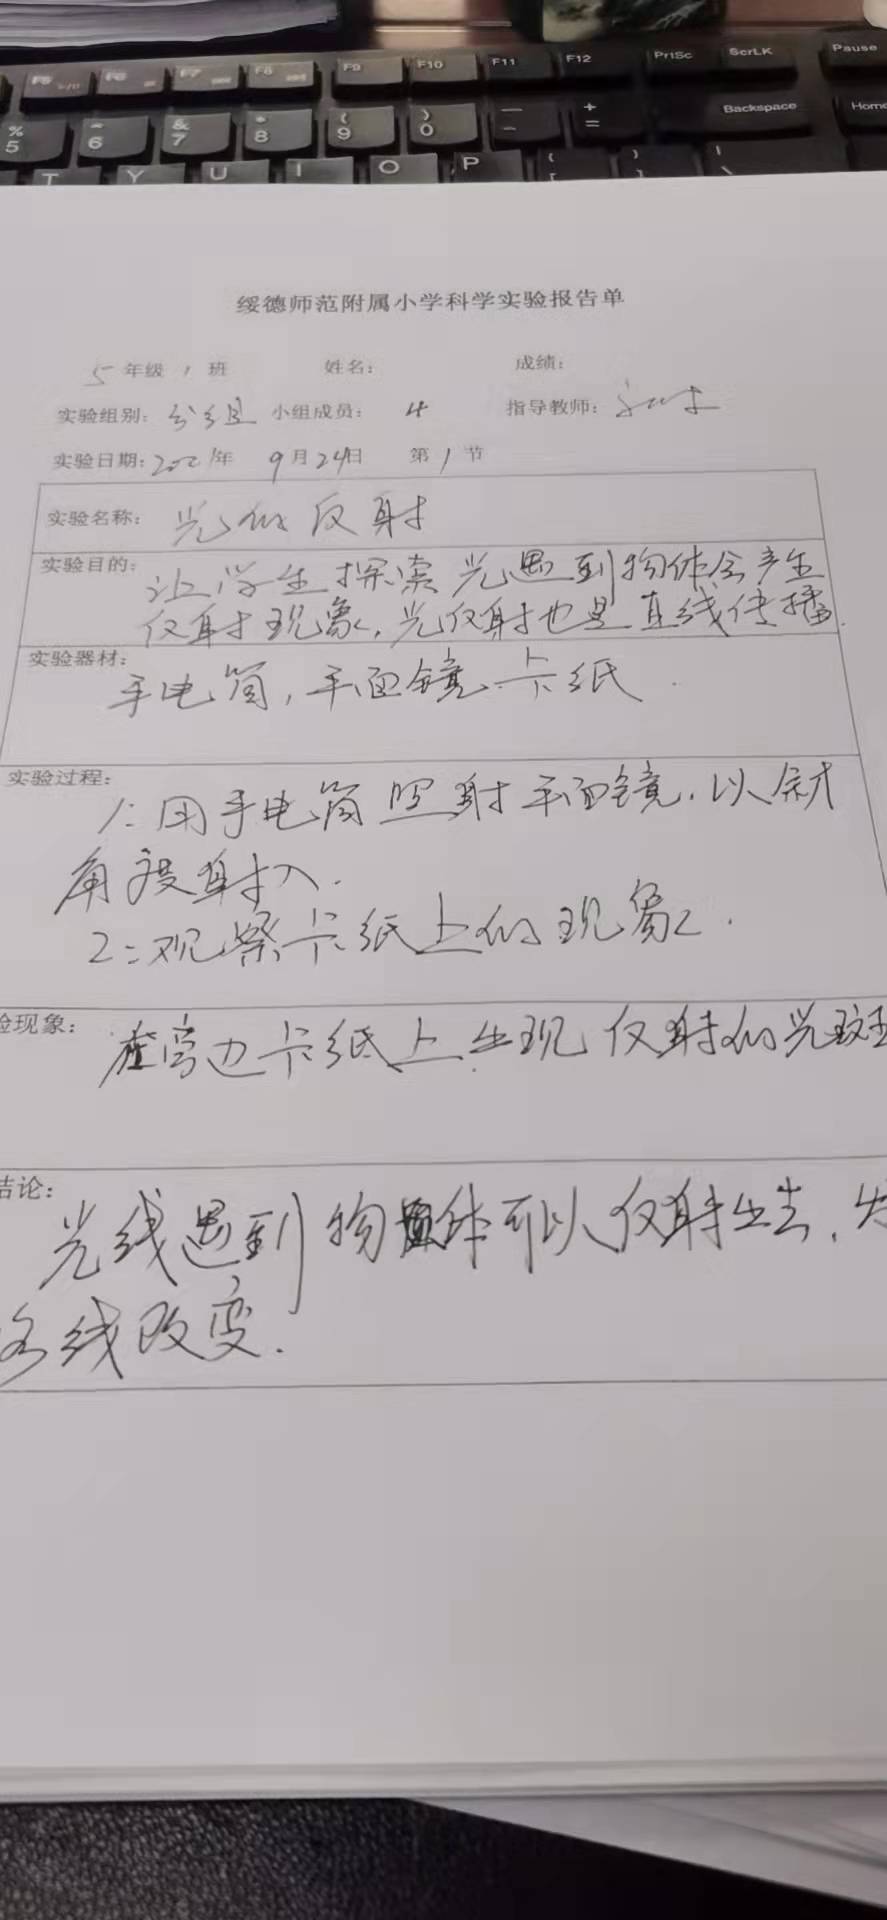 F5 F6 F7 F8 F9 F10 F11 F12 PrtSc ScrLK Pause
% 5 ^ 6 & 7 * 8 ( 9 ) 0 — - + = Backspace Home
T Y U I O P
绥德师范附属小学科学实验报告单
5 年级 1 班 姓名： 成绩：
实验组别：分组 小组成员： 4 指导教师：
实验日期：2021年 9月24日 第1节
实验名称： 光的反射
实验目的：让学生探索光遇到物体会产生
反射现象，光反射也是直线传播.
实验器材：
手电筒，平面镜.卡纸.
实验过程：
1：用手电筒照射平面镜，以斜
角度射入.
2：观察卡纸上的现象.
验现象： 在旁边卡纸上出现反射的光斑
结论：
光线遇到物体可以反射出去，
线改变.